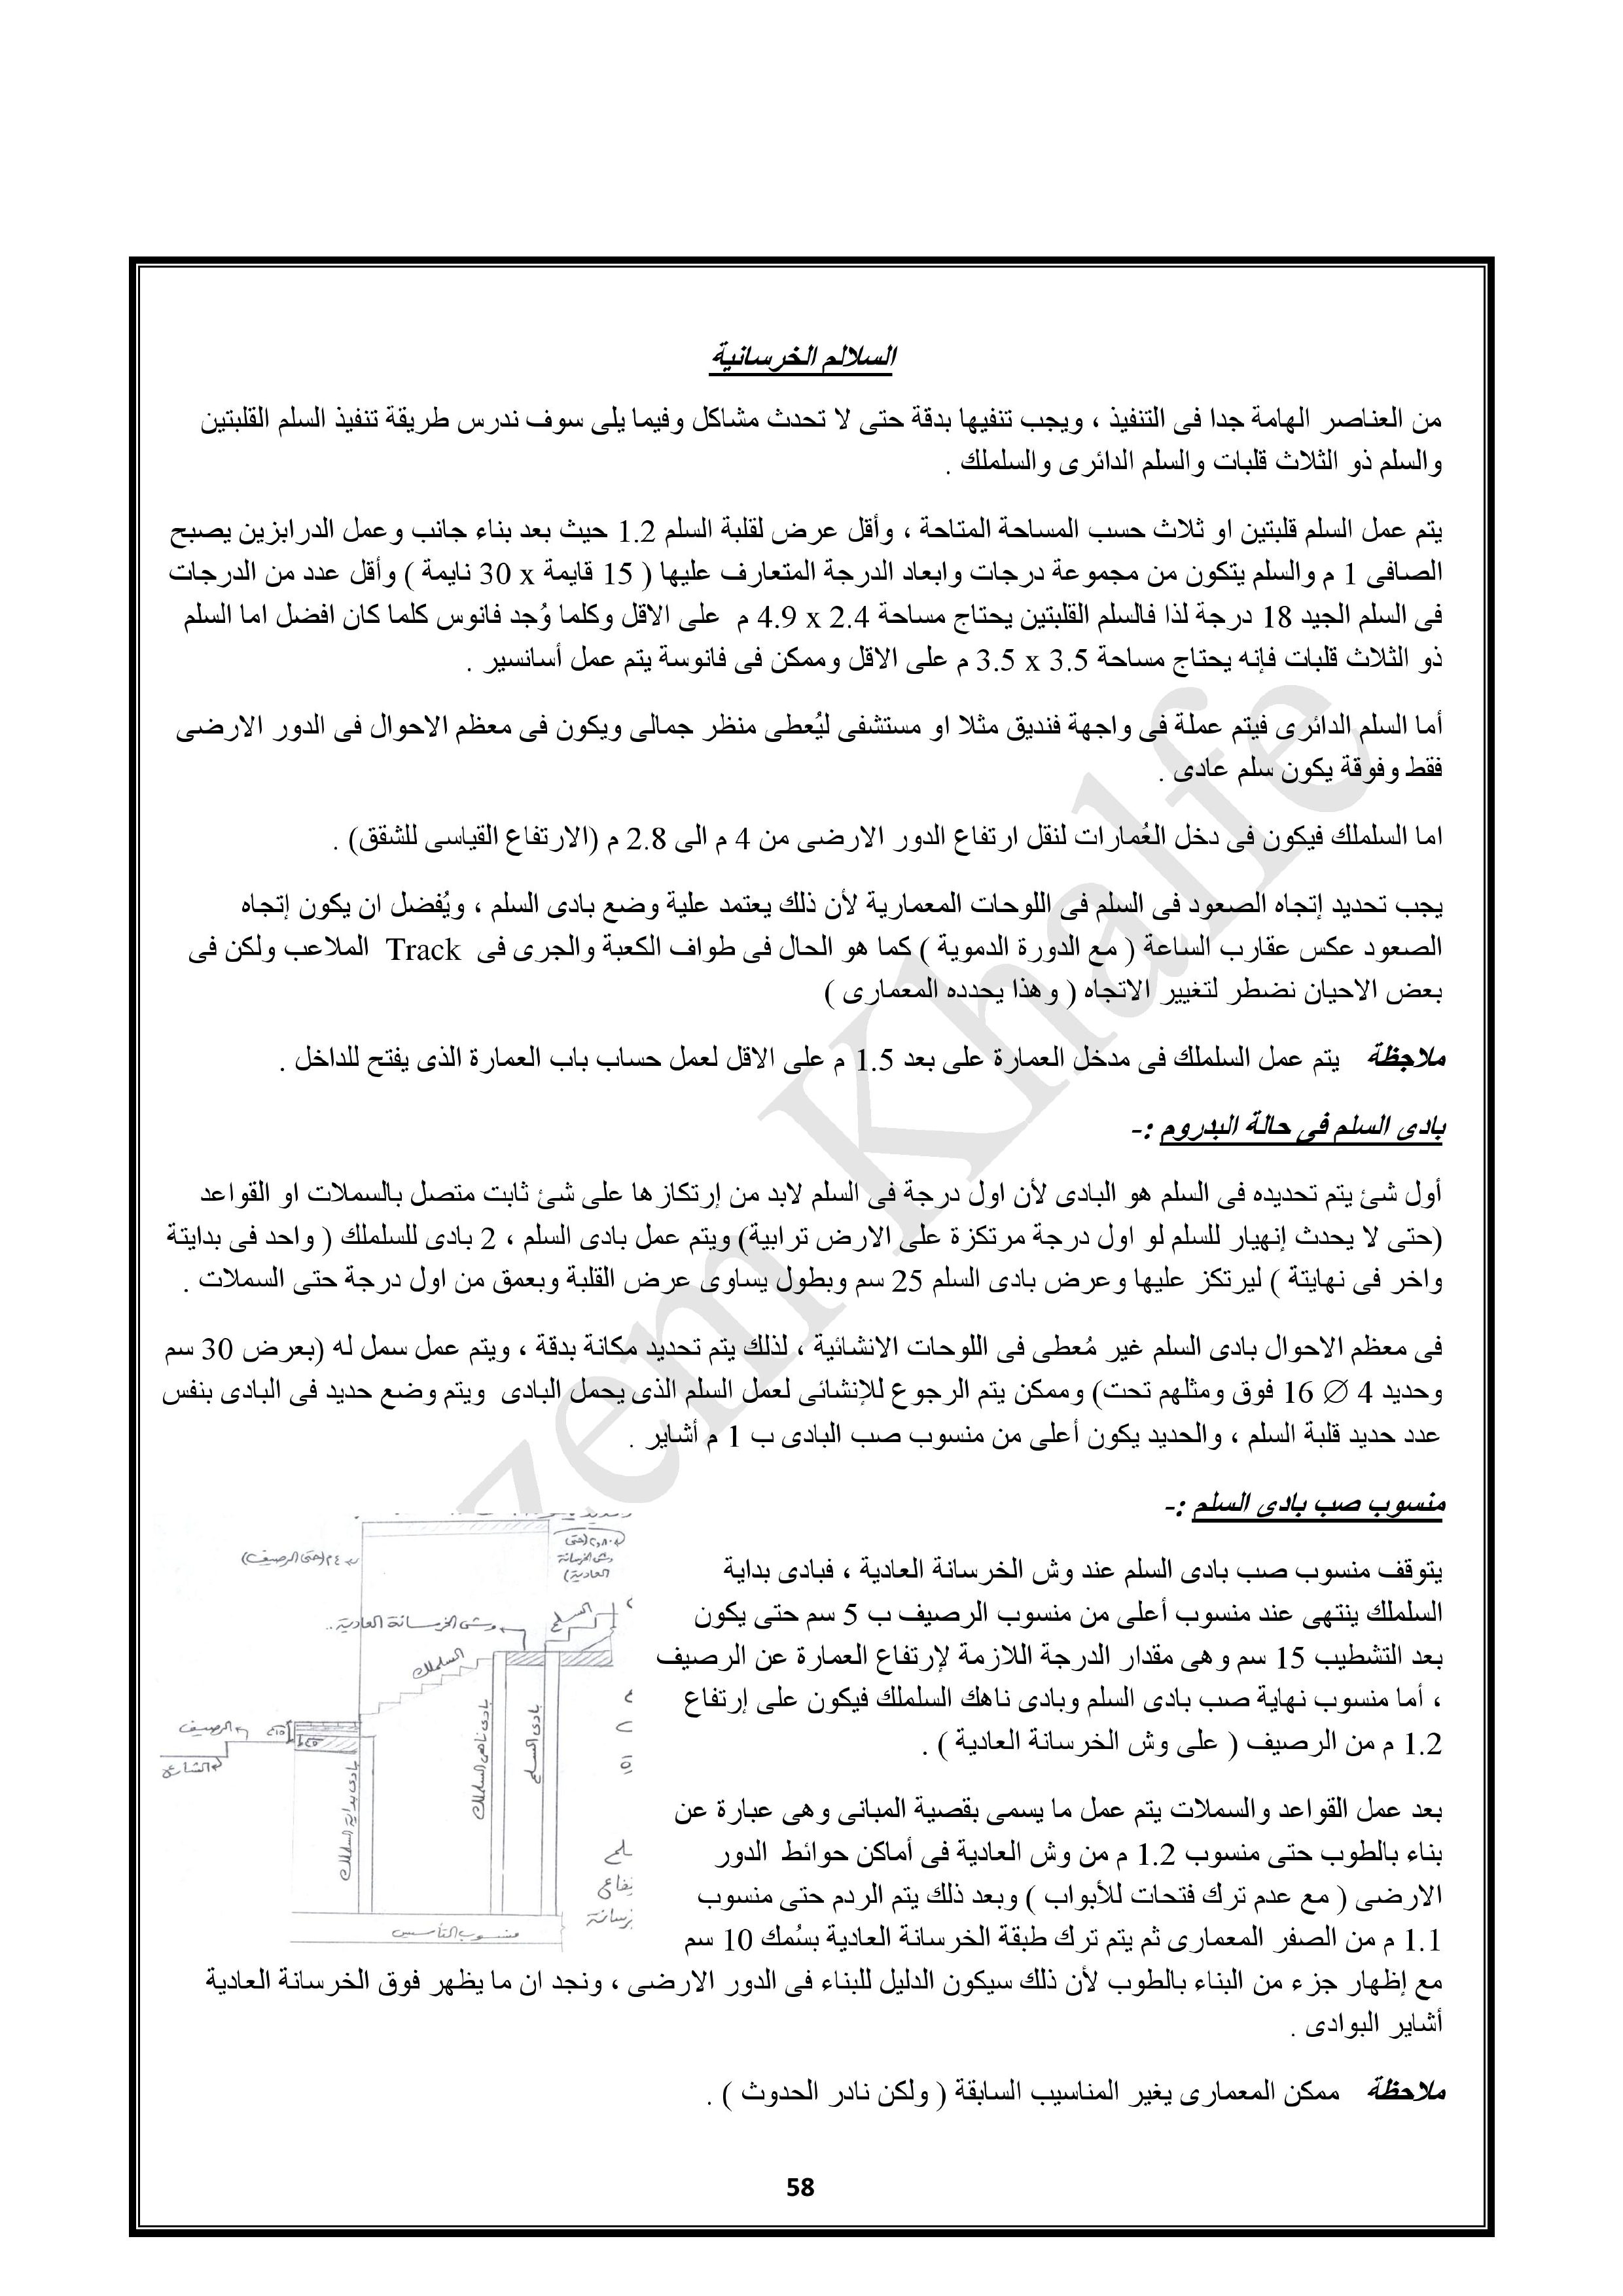 السلالم الخرسانية
من العناصر الهامة جدا فى التنفيذ ، ويجب تنفيها بدقة حتى لا تحدث مشاكل وفيما يلى سوف ندرس طريقة تنفيذ السلم القلبتين
والسلم ذو الثلاث قلبات والسلم الدائرى والسلملك .
يتم عمل السلم قلبتين او ثلاث حسب المساحة المتاحة ، وأقل عرض لقلبة السلم 1.2 حيث بعد بناء جانب وعمل الدرابزين يصبح
الصافى 1 م والسلم يتكون من مجموعة درجات وابعاد الدرجة المتعارف عليها ( 15 قايمة x 30 نايمة ) وأقل عدد من الدرجات
فى السلم الجيد 18 درجة لذا فالسلم القلبتين يحتاج مساحة 2.4 x 4.9 م على الاقل وكلما وُجد فانوس كلما كان افضل اما السلم
ذو الثلاث قلبات فإنه يحتاج مساحة 3.5 x 3.5 م على الاقل وممكن فى فانوسة يتم عمل أسانسير .
أما السلم الدائرى فيتم عملة فى واجهة فنديق مثلا او مستشفى ليُعطى منظر جمالى ويكون فى معظم الاحوال فى الدور الارضى
فقط وفوقة يكون سلم عادى .
اما السلملك فيكون فى دخل العُمارات لنقل ارتفاع الدور الارضى من 4 م الى 2.8 م (الارتفاع القياسى للشقق) .
يجب تحديد إتجاه الصعود فى السلم فى اللوحات المعمارية لأن ذلك يعتمد علية وضع بادى السلم ، ويُفضل ان يكون إتجاه
الصعود عكس عقارب الساعة ( مع الدورة الدموية ) كما هو الحال فى طواف الكعبة والجرى فى Track الملاعب ولكن فى
بعض الاحيان نضطر لتغيير الاتجاه ( وهذا يحدده المعمارى )
ملاحظة يتم عمل السلملك فى مدخل العمارة على بعد 1.5 م على الاقل لعمل حساب باب العمارة الذى يفتح للداخل .
بادى السلم فى حالة البدروم :-
أول شئ يتم تحديده فى السلم هو البادى لأن اول درجة فى السلم لابد من إرتكازها على شئ ثابت متصل بالسملات او القواعد
(حتى لا يحدث إنهيار للسلم لو اول درجة مرتكزة على الارض ترابية) ويتم عمل بادى السلم ، 2 بادى للسلملك ( واحد فى بدايتة
واخر فى نهايتة ) ليرتكز عليها وعرض بادى السلم 25 سم وبطول يساوى عرض القلبة وبعمق من اول درجة حتى السملات .
فى معظم الاحوال بادى السلم غير مُعطى فى اللوحات الانشائية ، لذلك يتم تحديد مكانة بدقة ، ويتم عمل سمل له (بعرض 30 سم
وحديد 4 ∅ 16 فوق ومثلهم تحت) وممكن يتم الرجوع للإنشائى لعمل السلم الذى يحمل البادى ويتم وضع حديد فى البادى بنفس
عدد حديد قلبة السلم ، والحديد يكون أعلى من منسوب صب البادى ب 1 م أشاير .
منسوب صب بادى السلم :-
يتوقف منسوب صب بادى السلم عند وش الخرسانة العادية ، فبادى بداية
السلملك ينتهى عند منسوب أعلى من منسوب الرصيف ب 5 سم حتى يكون
بعد التشطيب 15 سم وهى مقدار الدرجة اللازمة لإرتفاع العمارة عن الرصيف
، أما منسوب نهاية صب بادى السلم وبادى ناهك السلملك فيكون على إرتفاع
1.2 م من الرصيف ( على وش الخرسانة العادية ) .
بعد عمل القواعد والسملات يتم عمل ما يسمى بقصية المبانى وهى عبارة عن
بناء بالطوب حتى منسوب 1.2 م من وش العادية فى أماكن حوائط الدور
الارضى ( مع عدم ترك فتحات للأبواب ) وبعد ذلك يتم الردم حتى منسوب
1.1 م من الصفر المعمارى ثم يتم ترك طبقة الخرسانة العادية بسُمك 10 سم
مع إظهار جزء من البناء بالطوب لأن ذلك سيكون الدليل للبناء فى الدور الارضى ، ونجد ان ما يظهر فوق الخرسانة العادية
أشاير البوادى .
ملاحظة ممكن المعمارى يغير المناسيب السابقة ( ولكن نادر الحدوث ) .
(حتى الرصيف)
(حتى
وش الخرسانة
العادية)
السلم
وش الخرسانة العادية
السلملك
الرصيف
الشارع
بادى بداية السلملك
بادى ناهى السلملك
بادى السلم
منسوب التأسيس
58
zem Khalfe